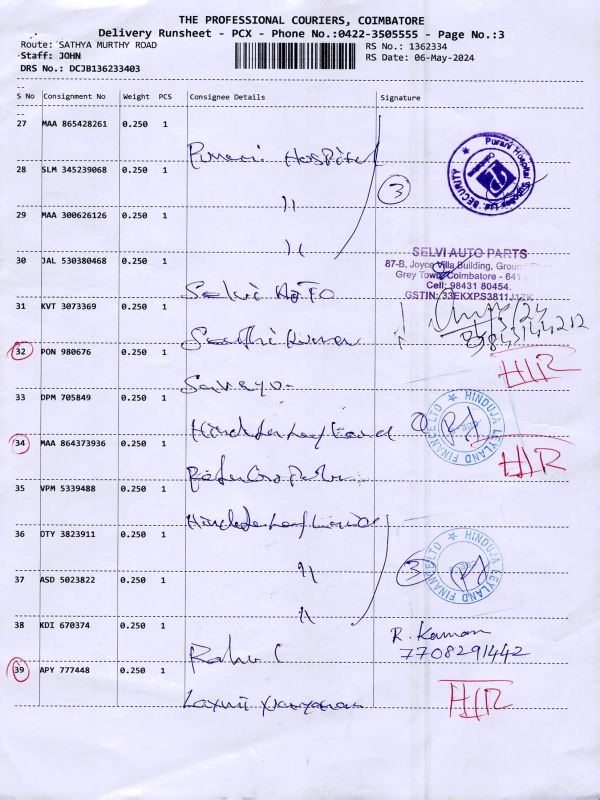 THE PROFESSIONAL COURIERS, COIMBATORE
Delivery Runsheet - PCX - Phone No.:0422-3505555 - Page No.:3
Route: SATHYA MURTHY ROAD RS No.: 1362334
Staff: JOHN RS Date: 06-May-2024
DRS No.: DCJB136233403
S No Consignment No Weight PCS Consignee Details Signature
27 MAA 865428261 0.250 1
Purani Hospital
Purani Hospital Supplies Pvt Ltd
SECURITY
Coimbatore
28 SLM 345239068 0.250 1
3
"
29 MAA 300626126 0.250 1
"
30 JAL 530380468 0.250 1
SELVI AUTO PARTS
87-B, Joyce Villa Building, Groun
Grey Town, Coimbatore - 641
Cell: 98431 80454.
GSTIN: 33EKXPS3811J1ZK
Selvi Auto
31 KVT 3073369 0.250 1
Senthil Kumar
32 PON 980676 0.250 1
HIR
33 DPM 705849 0.250 1
HINDUJA LEYLAND FINANCE LTD
34 MAA 864373936 0.250 1
HIR
35 VPM 5339488 0.250 1
36 OTY 3823911 0.250 1
HINDUJA LEYLAND FINANCE LTD
3
"
37 ASD 5023822 0.250 1
"
38 KDI 670374 0.250 1
R. Kaman
7708291442
Rahul
39 APY 777448 0.250 1
HIR
Laxmi Narayanan